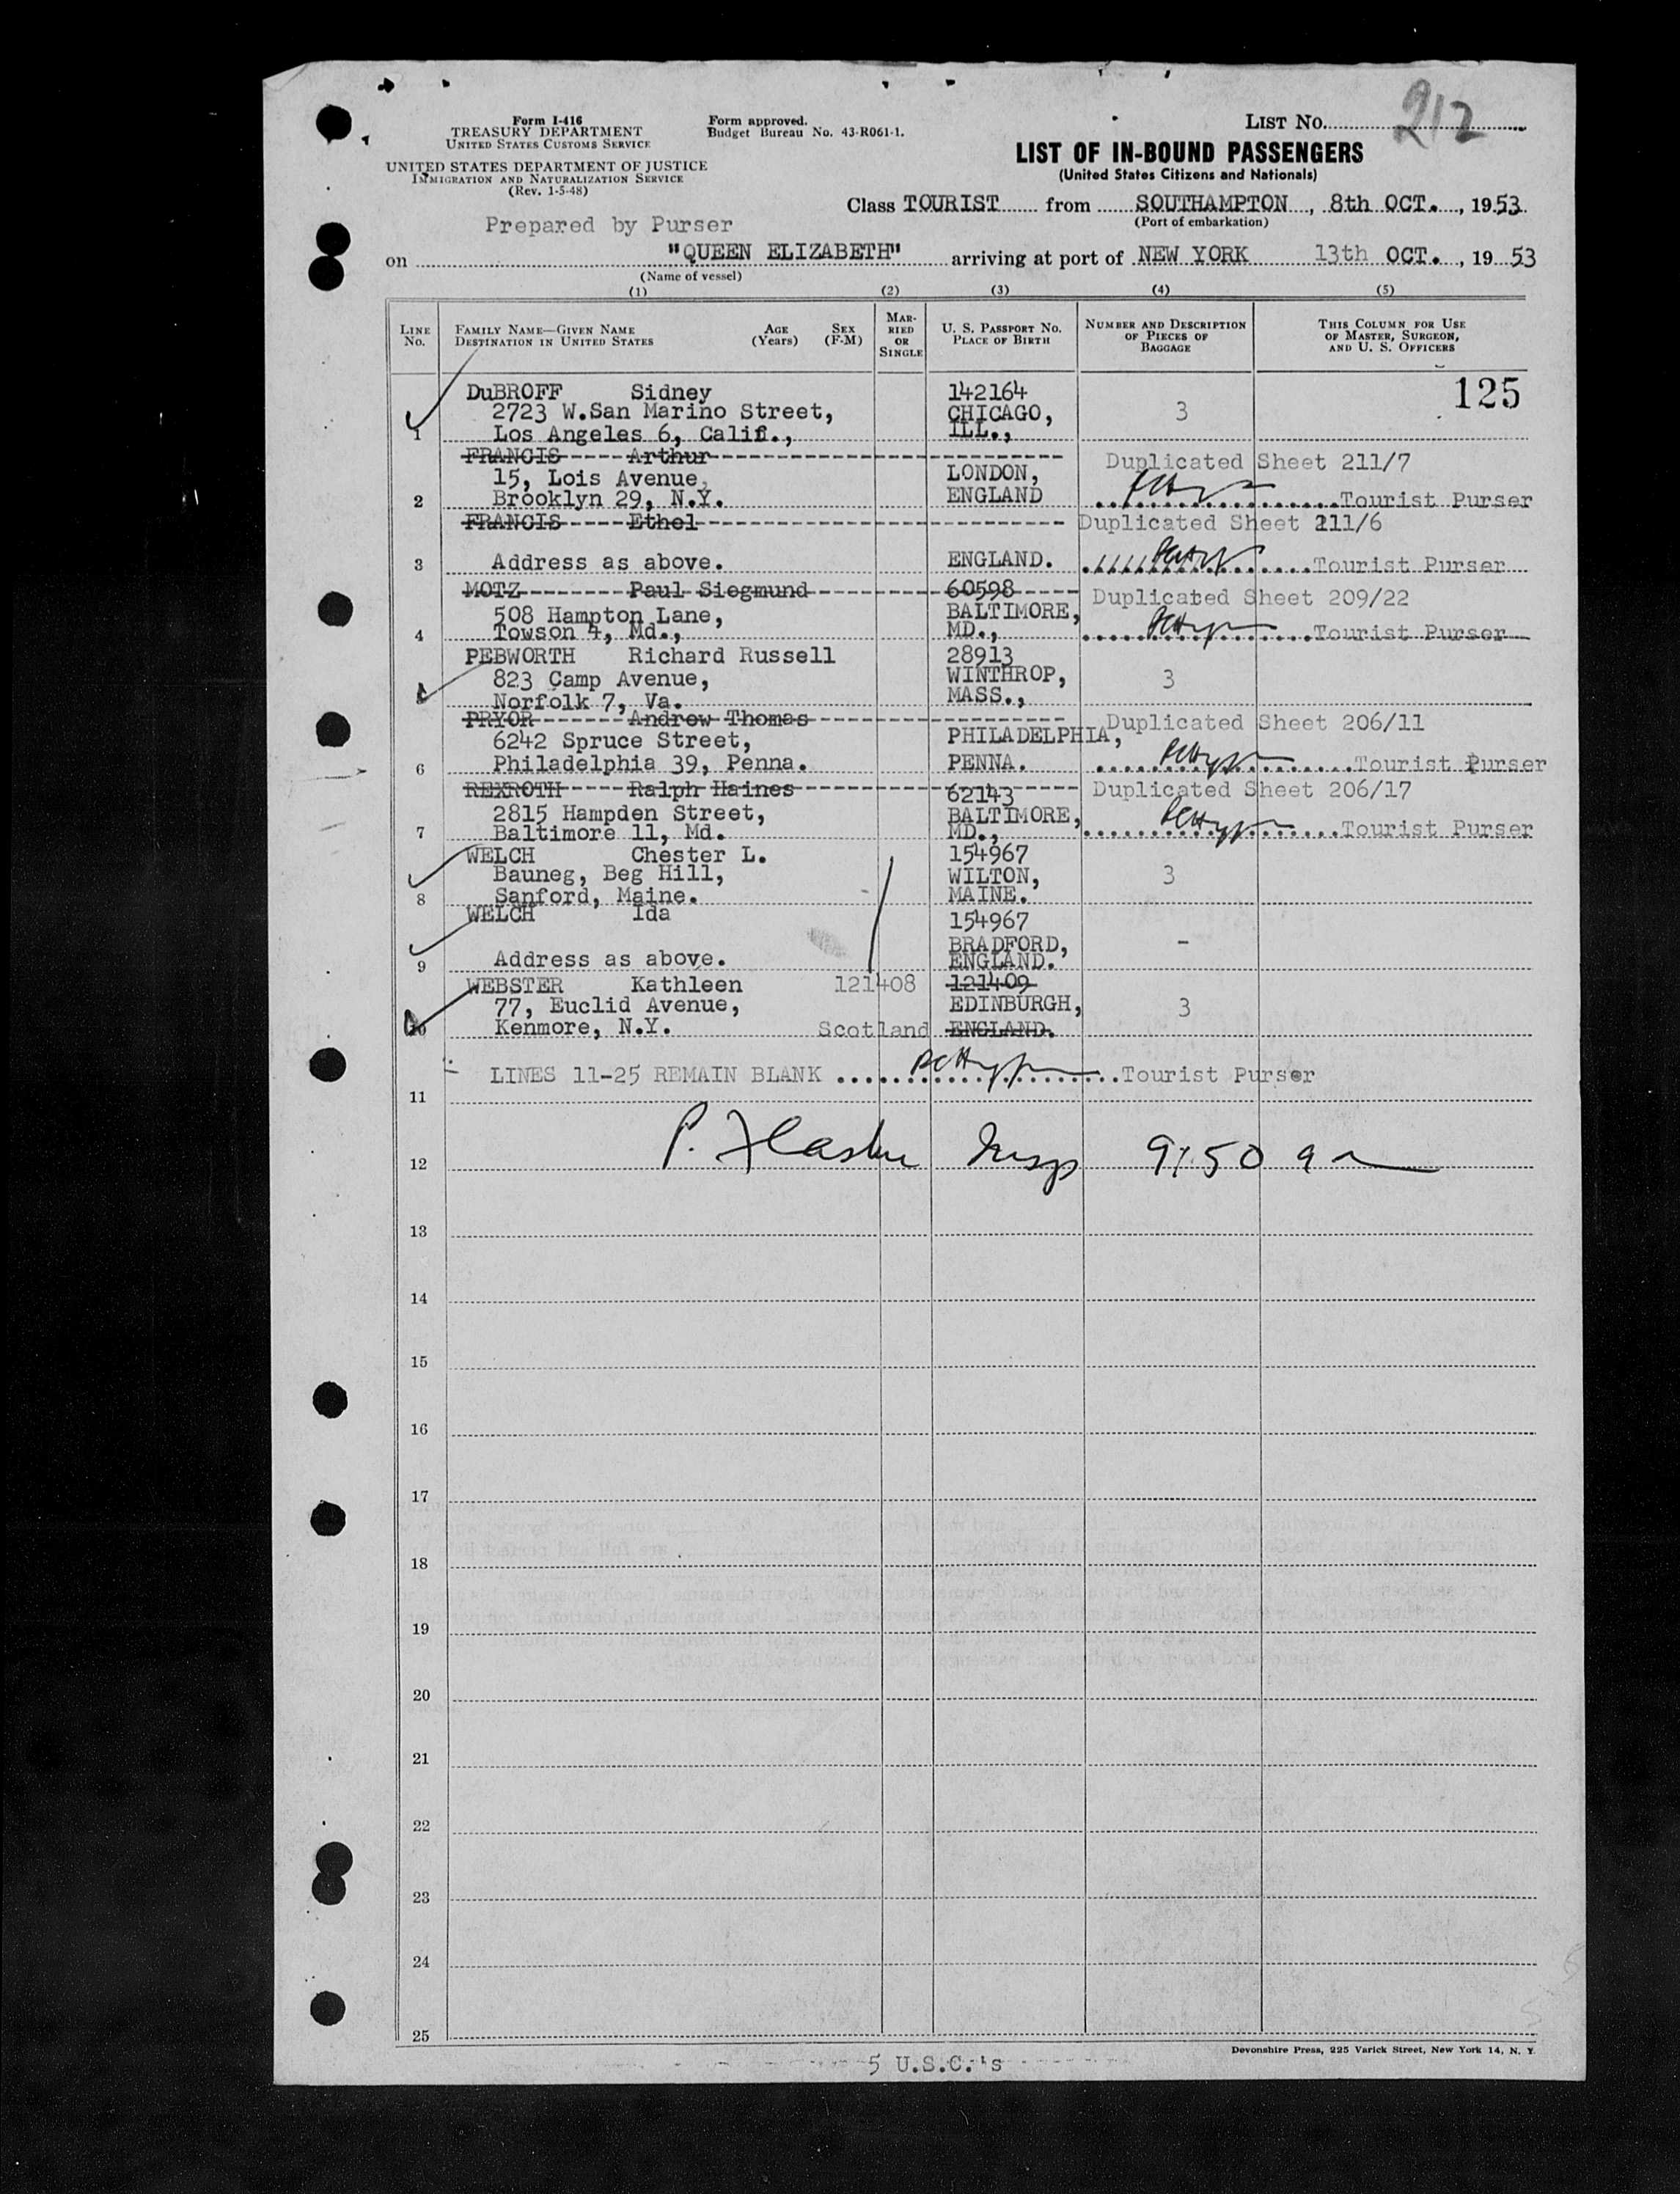 Form I-416
TREASURY DEPARTMENT
UNITED STATES CUSTOMS SERVICE
UNITED STATES DEPARTMENT OF JUSTICE
IMMIGRATION AND NATURALIZATION SERVICE
(Rev. 1-5-48)
Form approved.
Budget Bureau No. 43-R061-1.
LIST NO. 212
LIST OF IN-BOUND PASSENGERS
(United States Citizens and Nationals)
Class TOURIST from SOUTHAMPTON, 8th OCT., 1953.
(Port of embarkation)
Prepared by Purser
on "QUEEN ELIZABETH" arriving at port of NEW YORK 13th OCT., 1953
(Name of vessel)
(1) (2) (3) (4) (5)
LINE NO.
FAMILY NAME—GIVEN NAME AGE SEX
DESTINATION IN UNITED STATES (Years) (F-M)
MARRIED OR SINGLE
U. S. PASSPORT NO.
PLACE OF BIRTH
NUMBER AND DESCRIPTION OF PIECES OF BAGGAGE
THIS COLUMN FOR USE OF MASTER, SURGEON, AND U. S. OFFICERS
DuBROFF Sidney 142164 125
2723 W.San Marino Street, CHICAGO, 3
1 Los Angeles 6, Calif., ILL.,
FRANCIS Arthur Duplicated Sheet 211/7
15, Lois Avenue, LONDON,
2 Brooklyn 29, N.Y. ENGLAND Tourist Purser
FRANCIS Ethel Duplicated Sheet 211/6
3 Address as above. ENGLAND. Tourist Purser
MOTZ Paul Siegmund 60598 Duplicated Sheet 209/22
508 Hampton Lane, BALTIMORE,
4 Towson 4, Md., MD., Tourist Purser
PEBWORTH Richard Russell 28913
823 Camp Avenue, WINTHROP, 3
Norfolk 7, Va. MASS.,
PRYOR Andrew Thomas Duplicated Sheet 206/11
6242 Spruce Street, PHILADELPHIA,
6 Philadelphia 39, Penna. PENNA. Tourist Purser
REXROTH Ralph Haines 62143 Duplicated Sheet 206/17
2815 Hampden Street, BALTIMORE,
7 Baltimore 11, Md. MD., Tourist Purser
WELCH Chester L. 154967
Bauneg, Beg Hill, WILTON, 3
8 Sanford, Maine. MAINE.
WELCH Ida 154967
BRADFORD, -
9 Address as above. ENGLAND.
WEBSTER Kathleen 121408 121409
77, Euclid Avenue, EDINBURGH, 3
10 Kenmore, N.Y. Scotland ENGLAND.
LINES 11-25 REMAIN BLANK Tourist Purser
11
12 P. Insp 9:50 am
13
14
15
16
17
18
19
20
21
22
23
24
25
Devonshire Press, 225 Varick Street, New York 14, N. Y.
5 U.S.C.'s